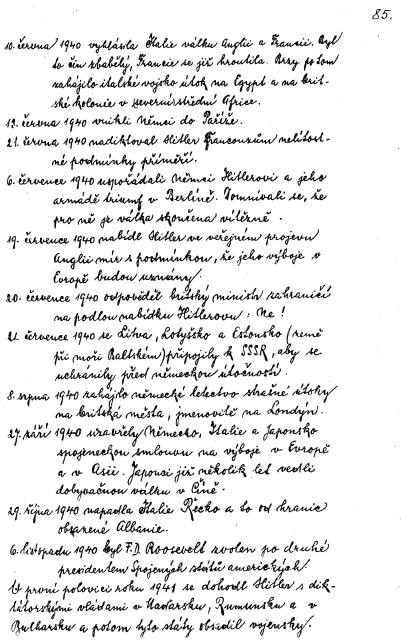 85.
10. června 1940 vyhlásila Italie válku Anglii a Francii. Byl
to čin zbabělý, Francie se již hroutila. Brzy po tom
zahájilo italské vojsko útok na Egypt a na brit-
ské kolonie v severní střední Africe.
13. června 1940 vnikli Němci do Paříže.
21. června 1940 nadiktoval Hitler Francouzům nelítost-
né podmínky příměří.
6. července 1940 uspořádali Němci Hitlerovi a jeho
armádě triumf v Berlíně. Domnívali se, že
pro ně je válka skončena vítězně.
19. července 1940 nabídl Hitler ve veřejném projevu
Anglii mír s podmínkou, že jeho výboje v
Evropě budou uznány.
20. července 1940 odpověděl britský ministr zahraničí
na podlou nabídku Hitlerovu: Ne!
21. července 1940 se Litva, Lotyšsko a Estonsko (země
při moři Baltském) připojily k SSSR, aby se
uchránily před německou útočností.
8. srpna 1940 zahájilo německé letectvo strašné útoky
na britská města, jmenovitě na Londýn.
27. září 1940 uzavřely Německo, Italie a Japonsko
spojeneckou smlouvu na výboje v Evropě
a v Asii. Japonci již několik let vedli
dobyvačnou válku v Číně.
29. října 1940 napadla Italie Řecko a to od hranic
obsazené Albanie.
6. listopadu 1940 byl F. D. Roosevelt zvolen po druhé
presidentem Spojených států amerických.
V první polovici roku 1941 se dohodl Hitler s dik-
tátorskými vládami v Maďarsku, Rumunsku a v
Bulharsku a potom tyto státy obsadil vojensky.